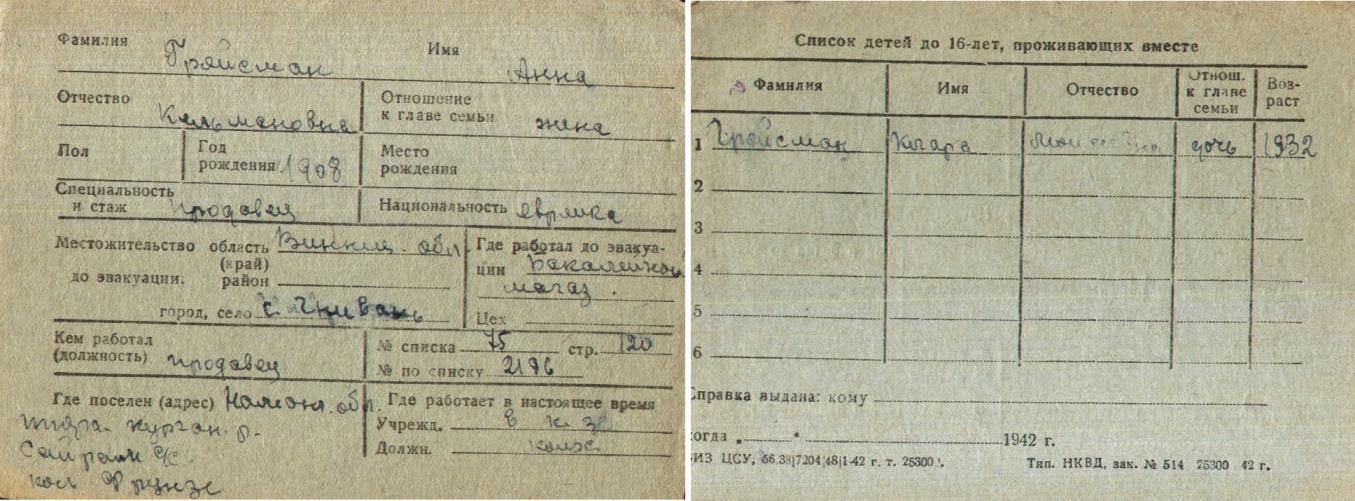 Фамилия Грайсман Имя Анна
Отчество Кельмановна Отношение к главе семьи жена
Пол Год рождения 1908 Место рождения
Специальность и стаж продавец Национальность еврейка
Местожительство до эвакуации. область (край) Винниц. обл.
район
город, село с. Гнивань
Где работал до эвакуации Бакалейной
магаз.
Цех
Кем работал (должность) продавец
№ списка 75 стр. 120
№ по списку 2196
Где поселен (адрес) Наманг. обл.
курган. р.
с/с.
кол Фрунзе
Где работает в настоящее время
Учрежд. в к-зе
Должн. колх.
Список детей до 16-лет, проживающих вместе
Фамилия Имя Отчество Отнош. к главе семьи Возраст
1 Гройсман Клара дочь 1932
2
3
4
5
6
Справка выдана: кому
когда „ “ 1942 г.
ВИЗ ЦСУ, 56.38|7204|48|1-42 г. т. 25300. Тип. НКВД, зак. № 514 25300 42 г.